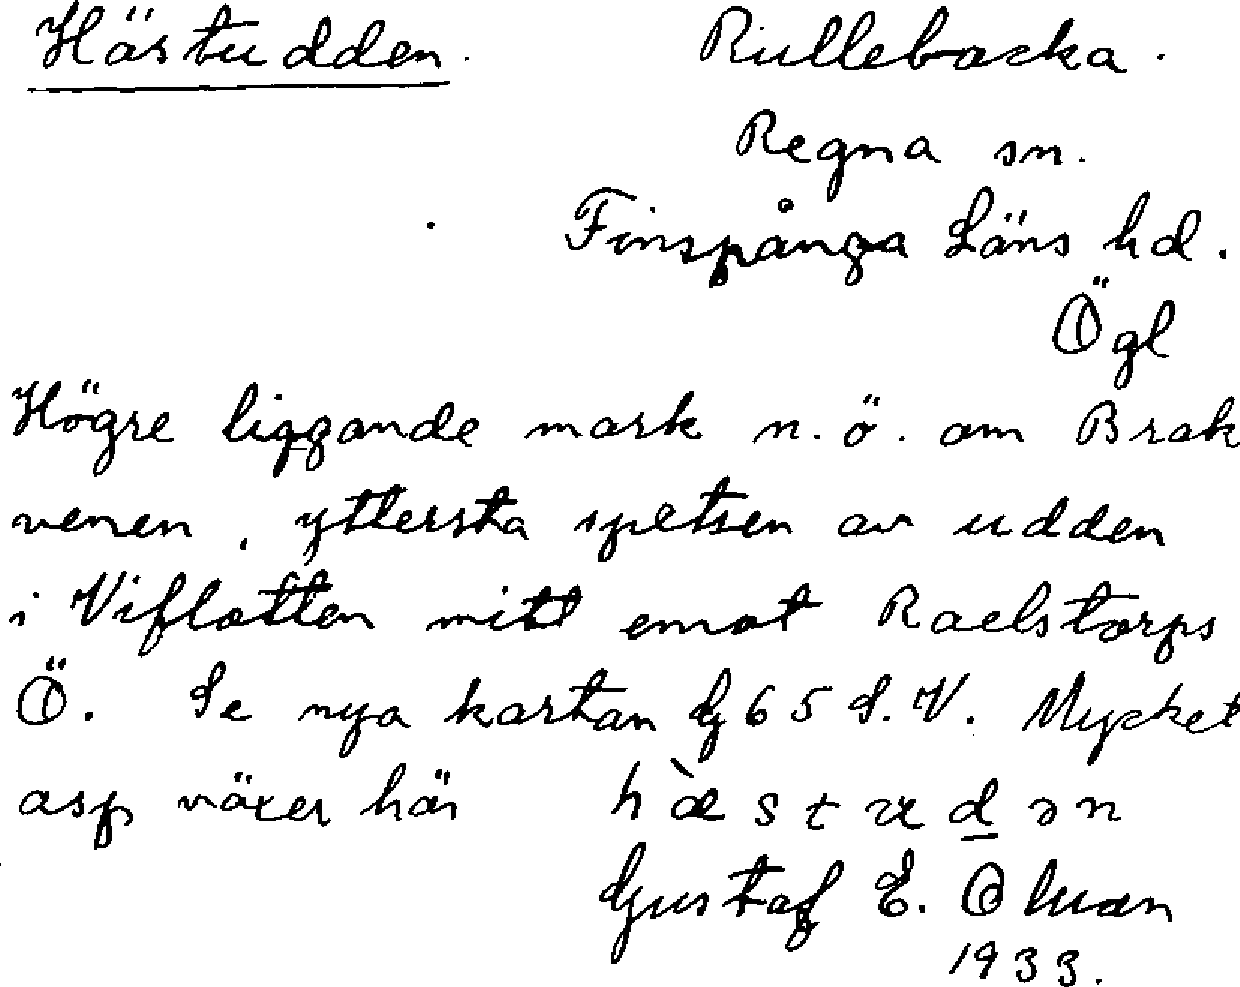 Hästudden. Rullebacka.
Regna sn.
Finspånga Läns hd.
Ögl
Högre liggande mark n.ö. om Brak
venen, yttersta spetsen av udden
i Viflotten mitt emot Raelstorps
Ö. Se nya kartan G65 S.V. Mycket
asp växer här hæ̀stɯd̲ən
Gustaf E. Ohman
1933.